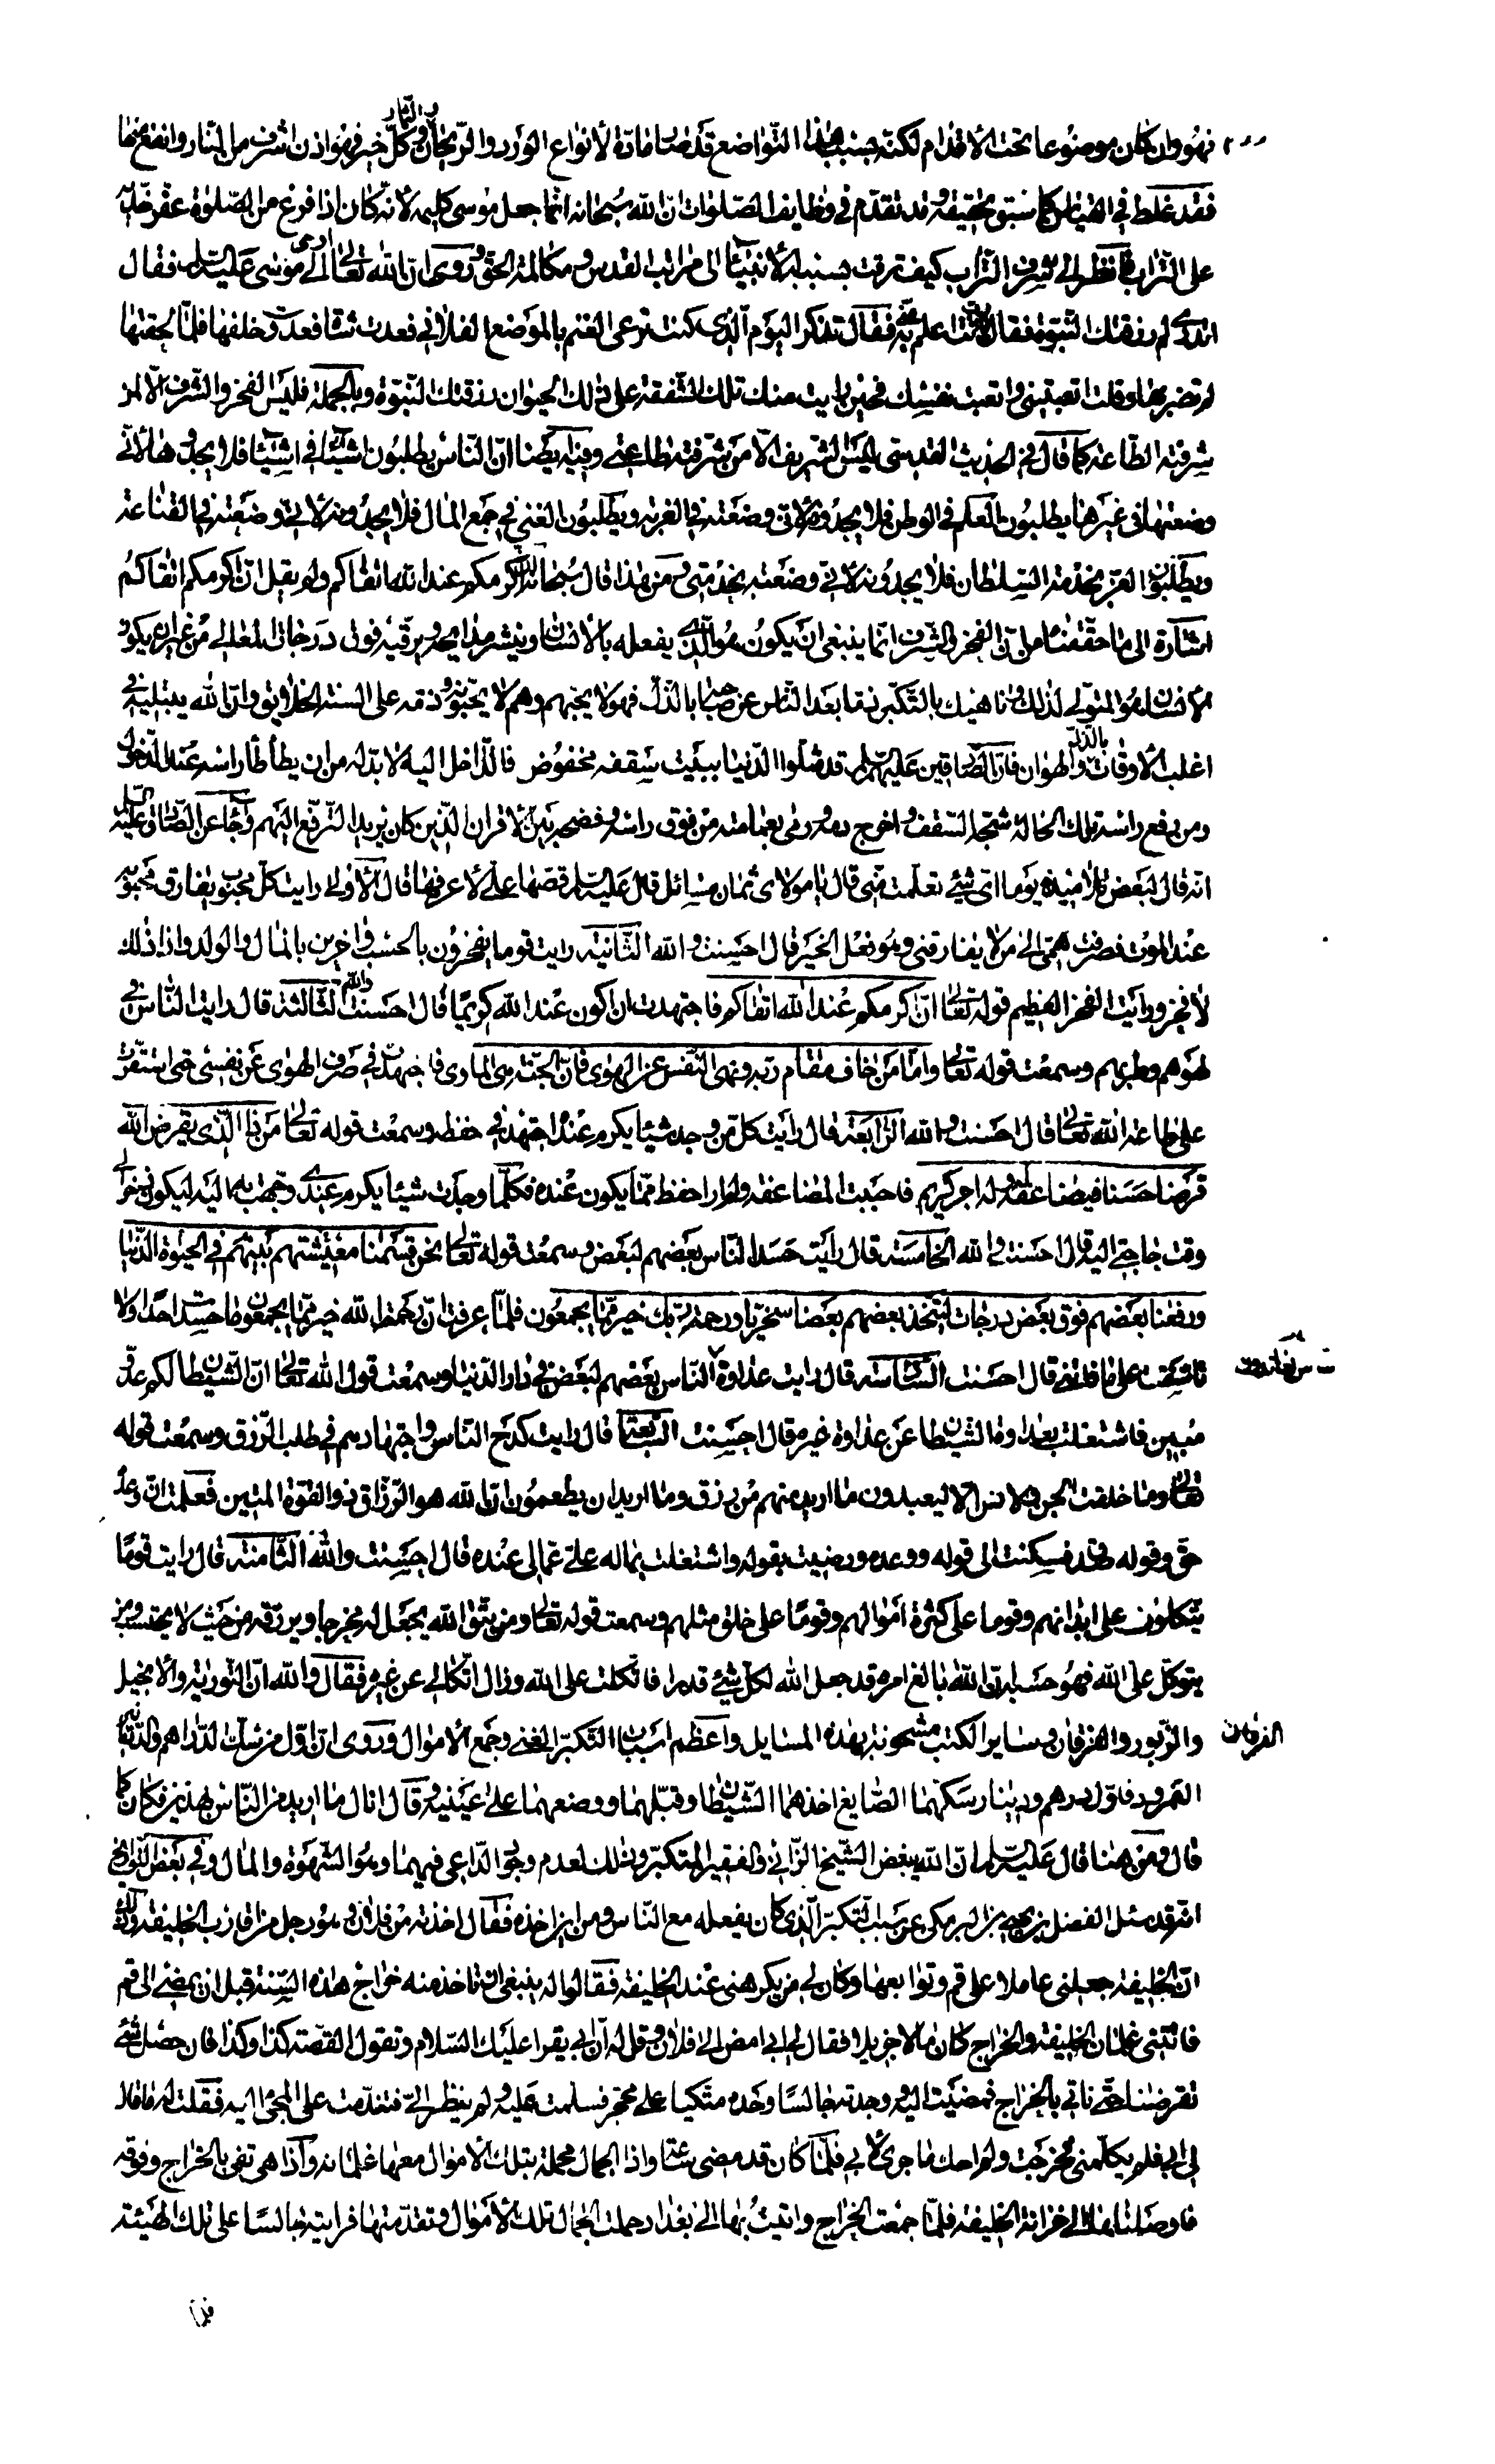 فهو وان كان موضوعا تحت الأقدام لكنه بسبب هذا التواضع قد صار مادة لأنواع الورد والريحان والثمار وكل خير فهو اذن اشرف من النار وانفع منها
فقد غلط في القياس كما سبق تحقيقه وقد تقدم في وظايف الصلوات ان الله سبحانه انما جعل موسى كليمه لأنه كان اذا فرغ من الصلوة عفر خديه
على التراب فانظر الى شرف التراب كيف ترقت بسببه الأنبياء الى مراتب القدس ومكالمة الحق وروى ان الله تعالى اوحى الى موسى عليه السلام فقال
اتدري لم رزقتك النبوة فقال انت اعلم به فقال تذكر اليوم الذي كنت ترعى الغنم بالموضع الفلاني فعدت شاة فعدوت خلفها فلما لحقتها
لم تضربها وقلت اتعبتيني واتعبت نفسك فحين رايت منك تلك الشفقة على ذلك الحيوان رزقتك النبوة وبالجملة فليس الفخر والشرف الا لمن
شرفته الطاعة كما قال في الحديث القدسي ليس الشريف الا من شرفته طاعتي وفيه ايضا ان الناس يطلبون اشياء في اشياء فلا يجدوها لأني
وضعتها في غيرها يطلبون العلم في الوطن فلا يجدونه لأني وضعته في الغربة ويطلبون الغنى في جمع المال فلا يجدونه لأني وضعته في القناعة
ويطلبون العز بخدمة السلطان فلا يجدونه لأني وضعته بخدمتي ومن هذا قال سبحانه ان اكرمكم عند الله اتقاكم ولم يقل ان اكرمكم اتقاكم
اشارة الى ما حققناه من ان الفخر والشرف انما ينبغي ان يكون هو الذي يفعله بالأنسان وينشر مدايحه ويرقيه فوق درجات المعالي من غير ان يكون
الأنسان هو المتولي لذلك وناهيك بالتكبر ذما بعد الناس عن صاحبه بالذل فهو لا يحبهم وهم لا يحبونه وذمه على السنة الخلايق وان الله يبتليه في
اغلب الأوقات بالذلة والهوان فان الصادقين عليهم السلام قد مثلوا الدنيا ببيت سقفه مخفوض فالداخل اليه لا بد له من ان يطأطأ راسه عند الدخول
ومن رفع راسه تلك الحالة شجه السقف واخرج دمه ورمى بعمامته من فوق راسه وفضحه بين الأقران الذين كان يريد الترفع اليهم وجاء عن الصادق عليه السلام
انه قال لبعض تلامذته يوما اي شيء تعلمت مني قال يا مولاي ثمان مسائل قال عليه السلام قصها علي لأعرفها قال الأولى رايت كل محبوب يفارق محبوبه
عند الموت فصرفت همي الى من لا يفارقني وهو فعل الخير قال احسنت والله الثانية رايت قوما يفخرون بالحسب واخرين بالمال والولد واذا ذلك
لا فخر ورايت الفخر العظيم قوله تعالى ان اكرمكم عند الله اتقاكم فاجتهدت ان اكون عند الله كريما قال احسنت والله الثالثة قال رايت الناس في
لهوهم وطربهم وسمعت قوله تعالى واما من خاف مقام ربه ونهى النفس عن الهوى فان الجنة هي الماوى فاجتهدت في صرف الهوى عن نفسي حتى استقرت
على طاعة الله تعالى قال احسنت والله الرابعة قال رايت كل من وجد شيئا يكرم عنده اجتهد في حفظه وسمعت قوله تعالى من ذا الذي يقرض الله
قرضا حسنا فيضاعفه له وله اجر كريم فاحببت المضاعفة ولم ار احفظ مما يكون عنده فكلما وجدت شيئا يكرم عندي وجهت به اليه ليكون ذخرا لي
وقت حاجتي اليه قال احسنت والله الخامسة قال رايت حسد الناس بعضهم لبعض وسمعت قوله تعالى نحن قسمنا معيشتهم بينهم في الحيوة الدنيا
ورفعنا بعضهم فوق بعض درجات ليتخذ بعضهم بعضا سخريا ورحمة ربك خير مما يجمعون فلما عرفت ان رحمة الله خير مما يجمعون ما حسدت احدا ولا
تاسفت على ما فاتني قال احسنت السادسة قال رايت عداوة الناس بعضهم لبعض في دار الدنيا وسمعت قول الله تعالى ان الشيطان لكم عدو
مبين فاشتغلت بعداوة الشيطان عن عداوة غيره قال احسنت السابعة قال رايت كدح الناس واجتهادهم في طلب الرزق وسمعت قوله
تعالى وما خلقت الجن والانس الا ليعبدون ما اريد منهم من رزق وما اريد ان يطعمون ان الله هو الرزاق ذو القوة المتين فعلمت ان وعده
حق وقوله صدق فسكنت الى قوله ووعده ورضيت بقوله واشتغلت بما له علي عما لي عنده قال احسنت والله الثامنة قال رايت قوما
يتكلون على ابدانهم وقوما على كثرة اموالهم وقوما على خلق مثلهم وسمعت قوله تعالى ومن يتق الله يجعل له مخرجا ويرزقه من حيث لا يحتسب ومن
يتوكل على الله فهو حسبه ان الله بالغ امره قد جعل الله لكل شيء قدرا فاتكلت على الله وزال اتكالي عن غيره فقال والله ان التورية والأنجيل
والزبور والفرقان وساير الكتب مشحونة بهذه المسايل واعظم اسباب التكبر الغنى وجمع الأموال وروى ان اول من سك الدراهم والدنانير
النمرود فاول درهم ودينار سكهما الصايغ اخذهما الشيطان وقبلهما ووضعهما على عينيه وقال انال ما اريد من الناس بهذين فكان كما
قال ومن هنا قال عليه السلام ان الله يبغض الشيخ الزاني والفقير المتكبر وذلك لعدم وجود الداعي فيهما وهو الشهوة والمال وفي بعض التواريخ
انه قد سئل الفضل بن يحيى البرمكي عن سبب التكبر الذي كان يفعله مع الناس ومن اين اخذه فقال اخذته من فلان وهو رجل من اقارب الخليفة وذلك
ان الخليفة جعلني عاملا على قم وتوابعها وكان لي من يكرهني عند الخليفة فقالوا له ينبغي ان تاخذ منه خراج هذه السنة قبل ان يمضي الى قم
فاتتني غلمان الخليفة والخراج كان مالا جزيلا فقال لي ابي امض الى فلان وقل له ان ابي يقرا عليك السلام وتقول القصة كذا وكذا فان حصل شيء
تقرضنا حتى ناتي بالخراج فمضيت اليه ووجدته جالسا وحده متكيا على مخدة فسلمت عليه ولم ينظر الي فتندمت على المجيء اليه فقلت له ما قال
لي ابي فلم يكلمني فخرجت ولم احك ما جرى لأبي فلما كان قد مضى ساعة واذا الجمال محملة بتلك الأموال معها غلمانه واذا هي تفي بالخراج وفوقه
فاوصلناها الى خزانة الخليفة فلما جمعت الخراج واتيت بها الى بغداد حملت الجمال تلك الأموال وتقدمتها فرايته جالسا على تلك الهيئة
الفرقان